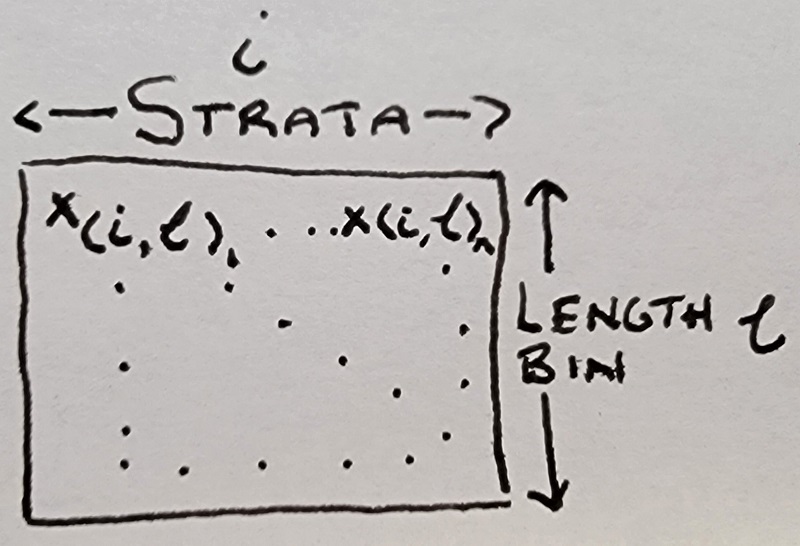 i
<— STRATA —>
x(i,l)₁ . . . x(i,l)ₙ
LENGTH l
BIN